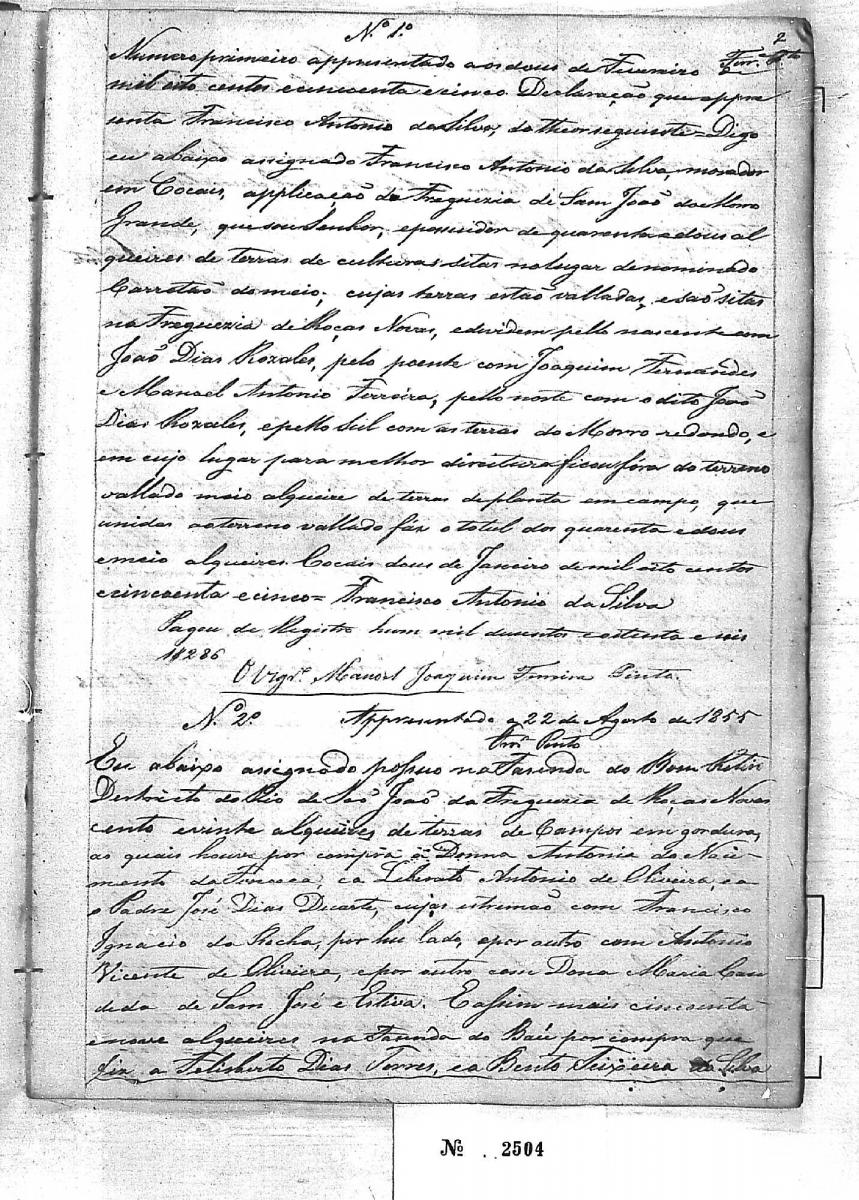 N.º 1.º
2
Numero primeiro appresentado aos dous de Fevereiro
mil oito centos e cincoenta e cinco. Declaração que appre
senta Francisco Antonio da Silva, do theor seguinte = Digo
eu abaixo assignado Francisco Antonio da Silva, morador
em Cocais, applicação da Freguezia de Sam João do Morro
Grande, que sou Senhor, e possuidor de quarenta e dous al
queires de terras de culturas sitas no lugar denominado
Carretão do meio, cujas terras estão valladas, e são sitas
na Freguezia de Roças Novas, e dividem pello nascente com
João Dias Rozales, pelo poente com Joaquim Fernandes
e Manoel Antonio Ferreira, pello norte com o dito João
Dias Rozales, e pello Sul com as terras do Morro redondo, e
em cujo lugar para melhor direitura ficou fóra do terreno
vallado meio alqueire de terras de planta em campo, que
unidas ao terreno vallado fáz o total dos quarenta e dous
e meio alqueires. Cocais dous de Janeiro de mil oito centos
e cincoenta e cinco = Francisco Antonio da Silva
Pagou de Registro hum mil duzentos e oitenta e seis
1$286
O Vigr.º Manoel Joaquim Ferreira Pinto.
N.º 2.º Appresentado a 22 de Agosto de 1855
Ferr.ª Pinto
Eu abaixo assignado possuo na Fazenda do Bom Retiro
Destricto do Rio de São João da Freguezia de Roças Novas
cento e vinte alqueires de terras de Campos em gordura,
as quais houve por compra a Donna Antonia do Naci-
mento da Fonseca, e a Liberato Antonio de Oliveira, e a
o Padre José Dias Duarte, cujas estremão com Francisco
Ignacio da Rocha, por hu lado, e por outro com Antonio
Vicente de Oliveira, e por outro com Dona Maria Can
deda de Sam José e Estiva. E assim mais cincoenta
e nove alqueires na Fazenda do Baú por compra que
fiz a Felisberto Dias Torres, e a Bento Teixeira da Silva
Nº 2504